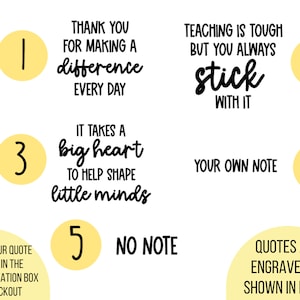 1
THANK YOU
FOR MAKING A
difference
EVERY DAY
TEACHING IS TOUGH
BUT YOU ALWAYS
stick
WITH IT
3
IT TAKES A
big heart
TO HELP SHAPE
little minds
YOUR OWN NOTE
5
NO NOTE
UR QUOTE
IN THE
ATION BOX
CKOUT
QUOTES
ENGRAVE
SHOWN IN